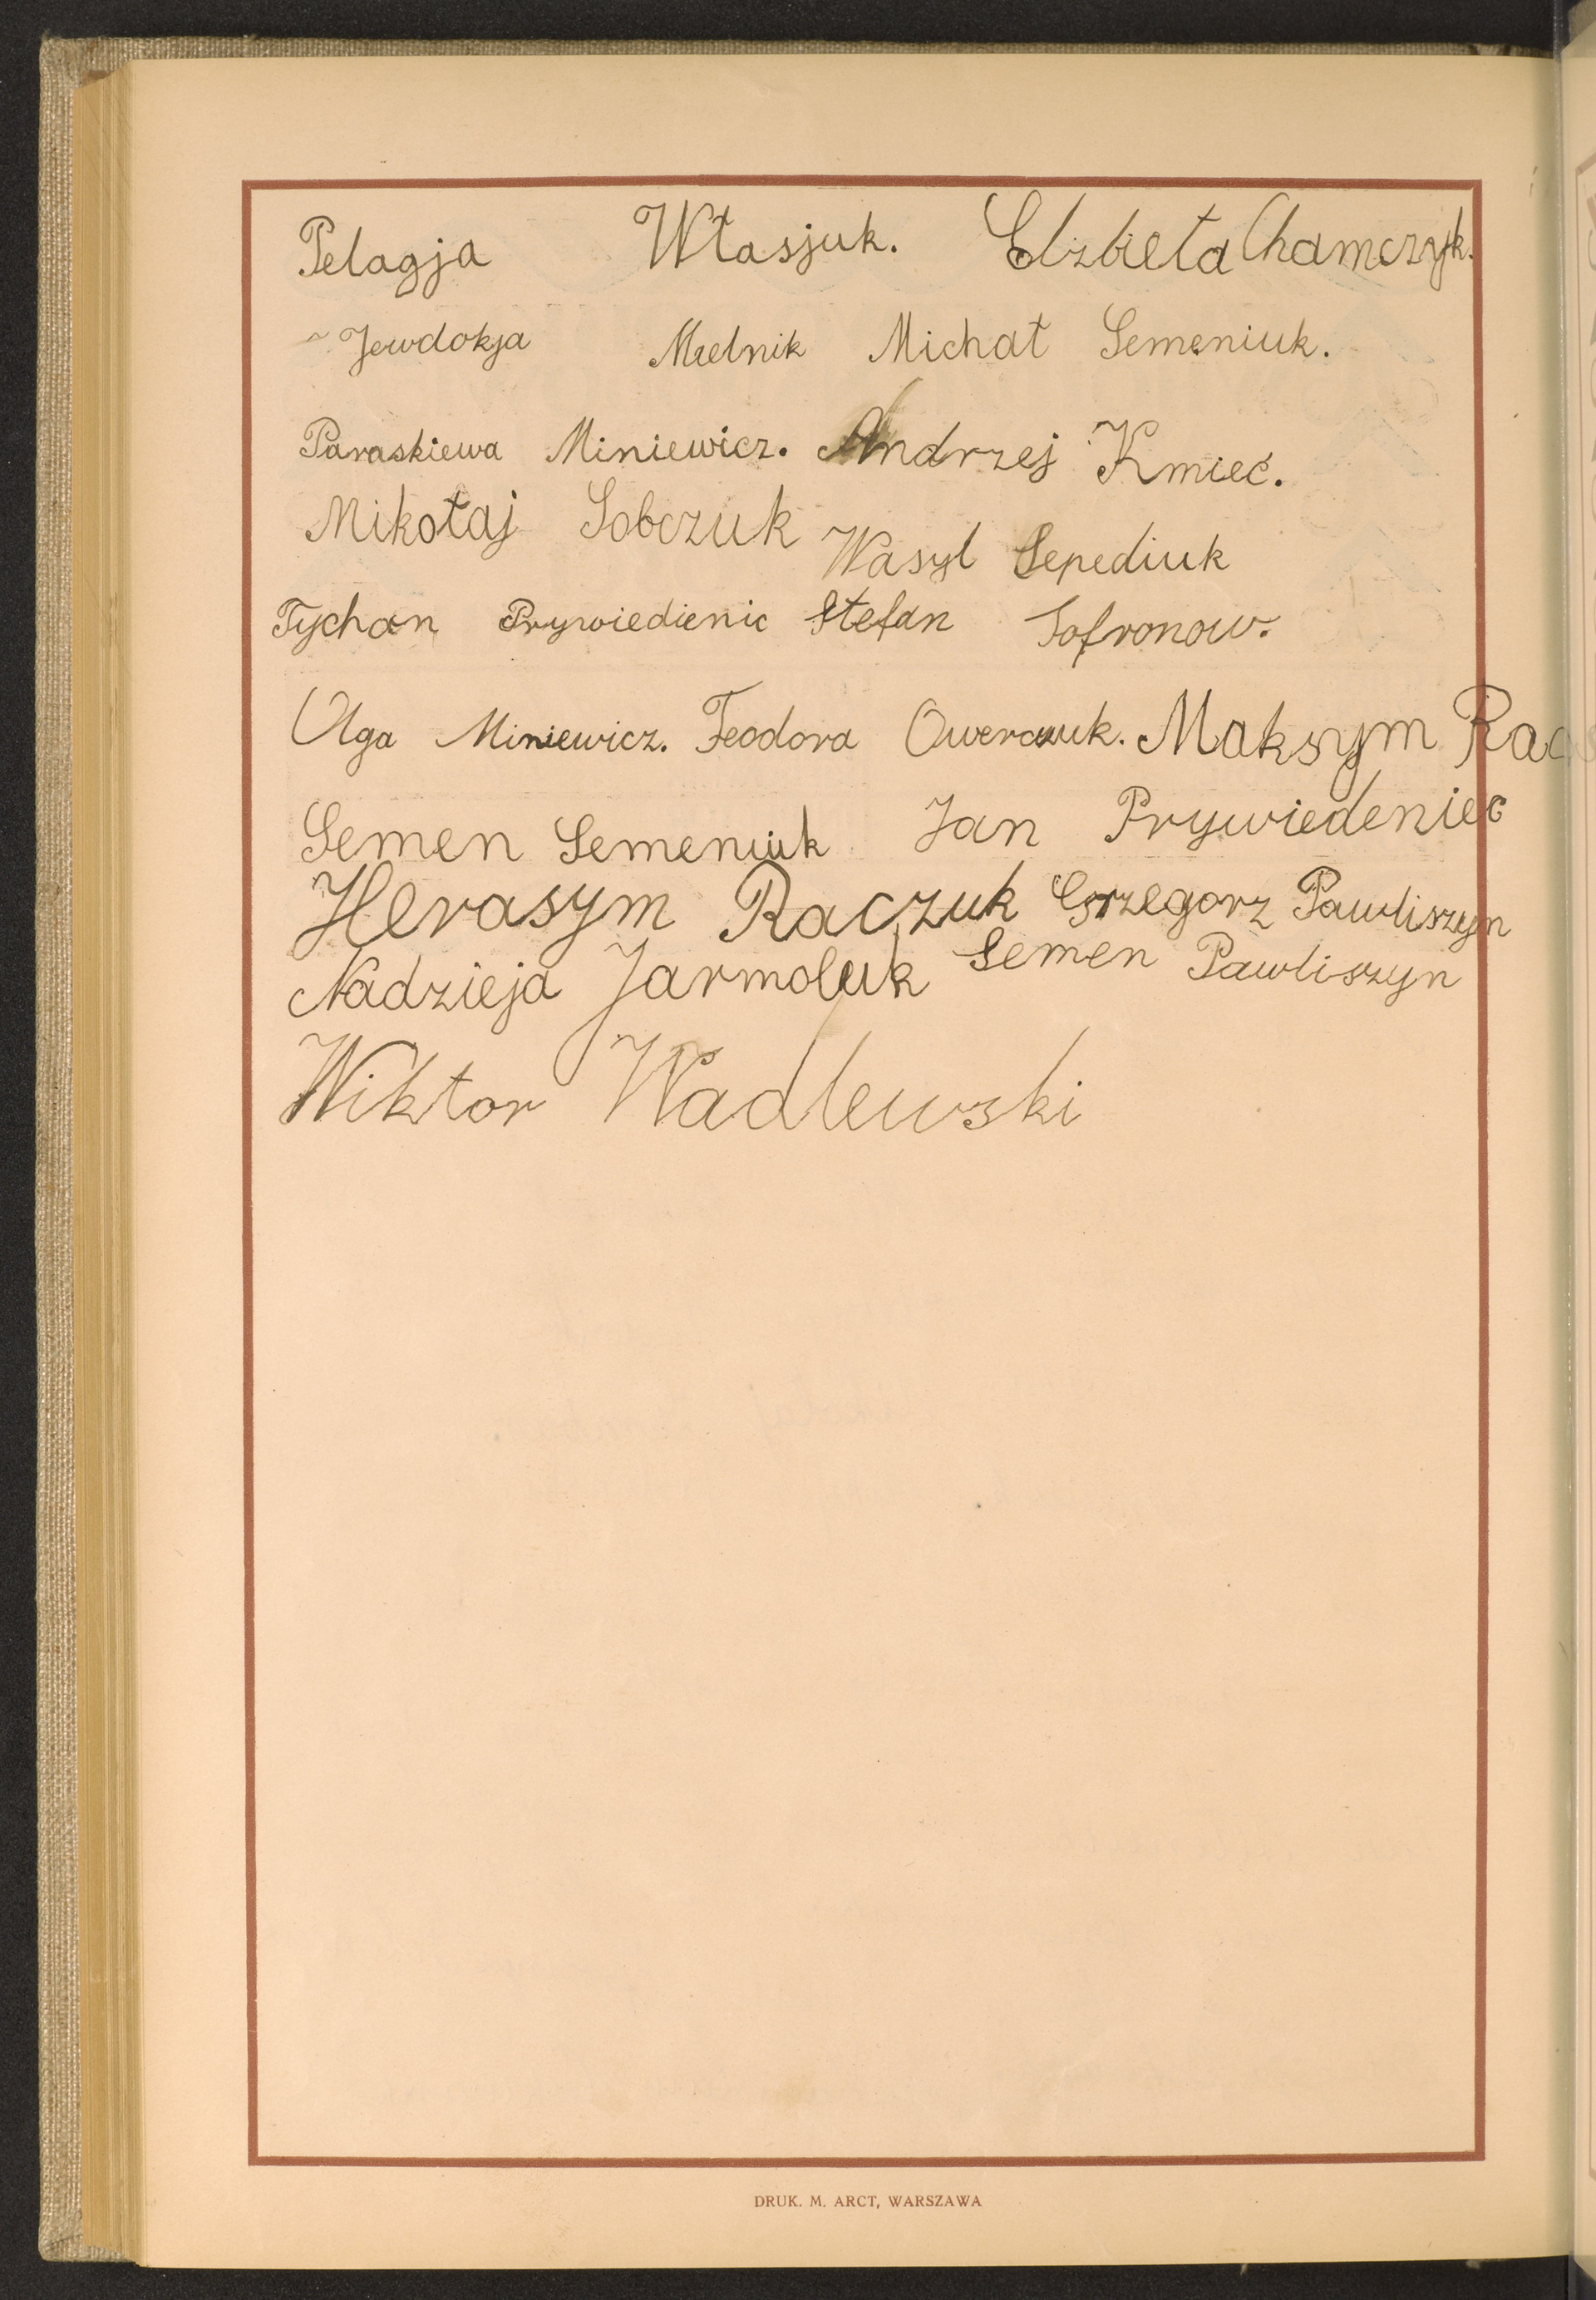 Pelagja Własjuk. Elżbieta Chamczyk.
Jewdokja Mielnik Michał Semeniuk.
Paraskiewa Miniewicz. Andrzej Kmieć.
Mikołaj Sobczuk Wasyl Sepediuk
Tychon Prywiedienic Stefan Sofronow.
Olga Miniewicz. Feodora Owerczuk. Maksym
Semen Semeniuk Jan Prywiedeniec
Herasym Raczuk Grzegorz Pawliszyn
Nadzieja Jarmoluk Semen Pawliszyn
Wiktor Wadlewski
DRUK. M. ARCT, WARSZAWA